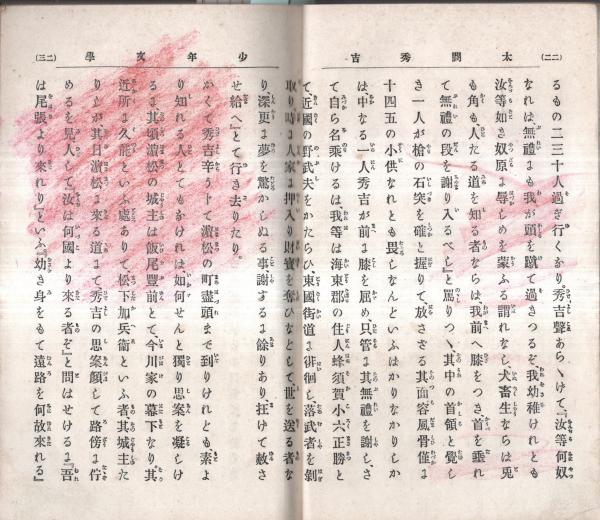 (二二)
太閤秀吉
るもの二三十人過ぎ行くかり、秀吉聲あらゝけて、『汝等何奴
なれは、無禮よも我が頭を蹴て過きつるぞ我幼稚けれとも
汝等如き奴原よ辱しめを蒙ふる謂れなし、犬畜生ならは兎
も角も人たる道を知る者ならは、我前へ膝をつき、首を垂れ
て無禮の段を謝り入るべし』と罵りつゝ其中の首領と覺し
き一人が槍の石突を確と握りて、放さざる其面容風骨僅よ
十四五の小供なれとも畏しなんといふはかりなかりしか
は、中なる一人秀吉が前よ膝を屈め、只管よ其無禮を謝し、さ
て自ら名乗けるは、『我等は海東郡の住人蜂須賀小六正勝と
て、近國の野武夫をかたらひ東國街道よ徘徊し、落武者を剝
取り時よ人家よ押入り財寶を奪ひなどして世を送る者な
り、深更よ夢を驚かしぬる事、謝するよ餘りあり、枉けて赦さ
せ給へ』とて行き去りたり。
かくて秀吉辛うして濵松の町盡頭まで到りけれとも、素よ
り知れる人とてもかけれは如何せんと獨り思案を凝しけ
るよ、其頃濵松の城主は飯尾豐前とて、今川家の幕下なり其
近所よ久能といふ處ありて、松下加兵衞といふ者其城主た
りしが其日濵松よ來る道よて秀吉の思案顔して路傍よ佇
めるを見、人して『汝は何國より來る者ぞ』と問はせけるよ『吾
は尾張より來れり』といふ、『幼き身をもて遠路を何故來れる』
少年文學
(二三)